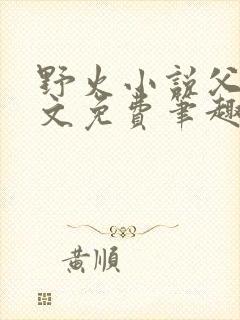 野火小説父
文免費筆趣
黄順